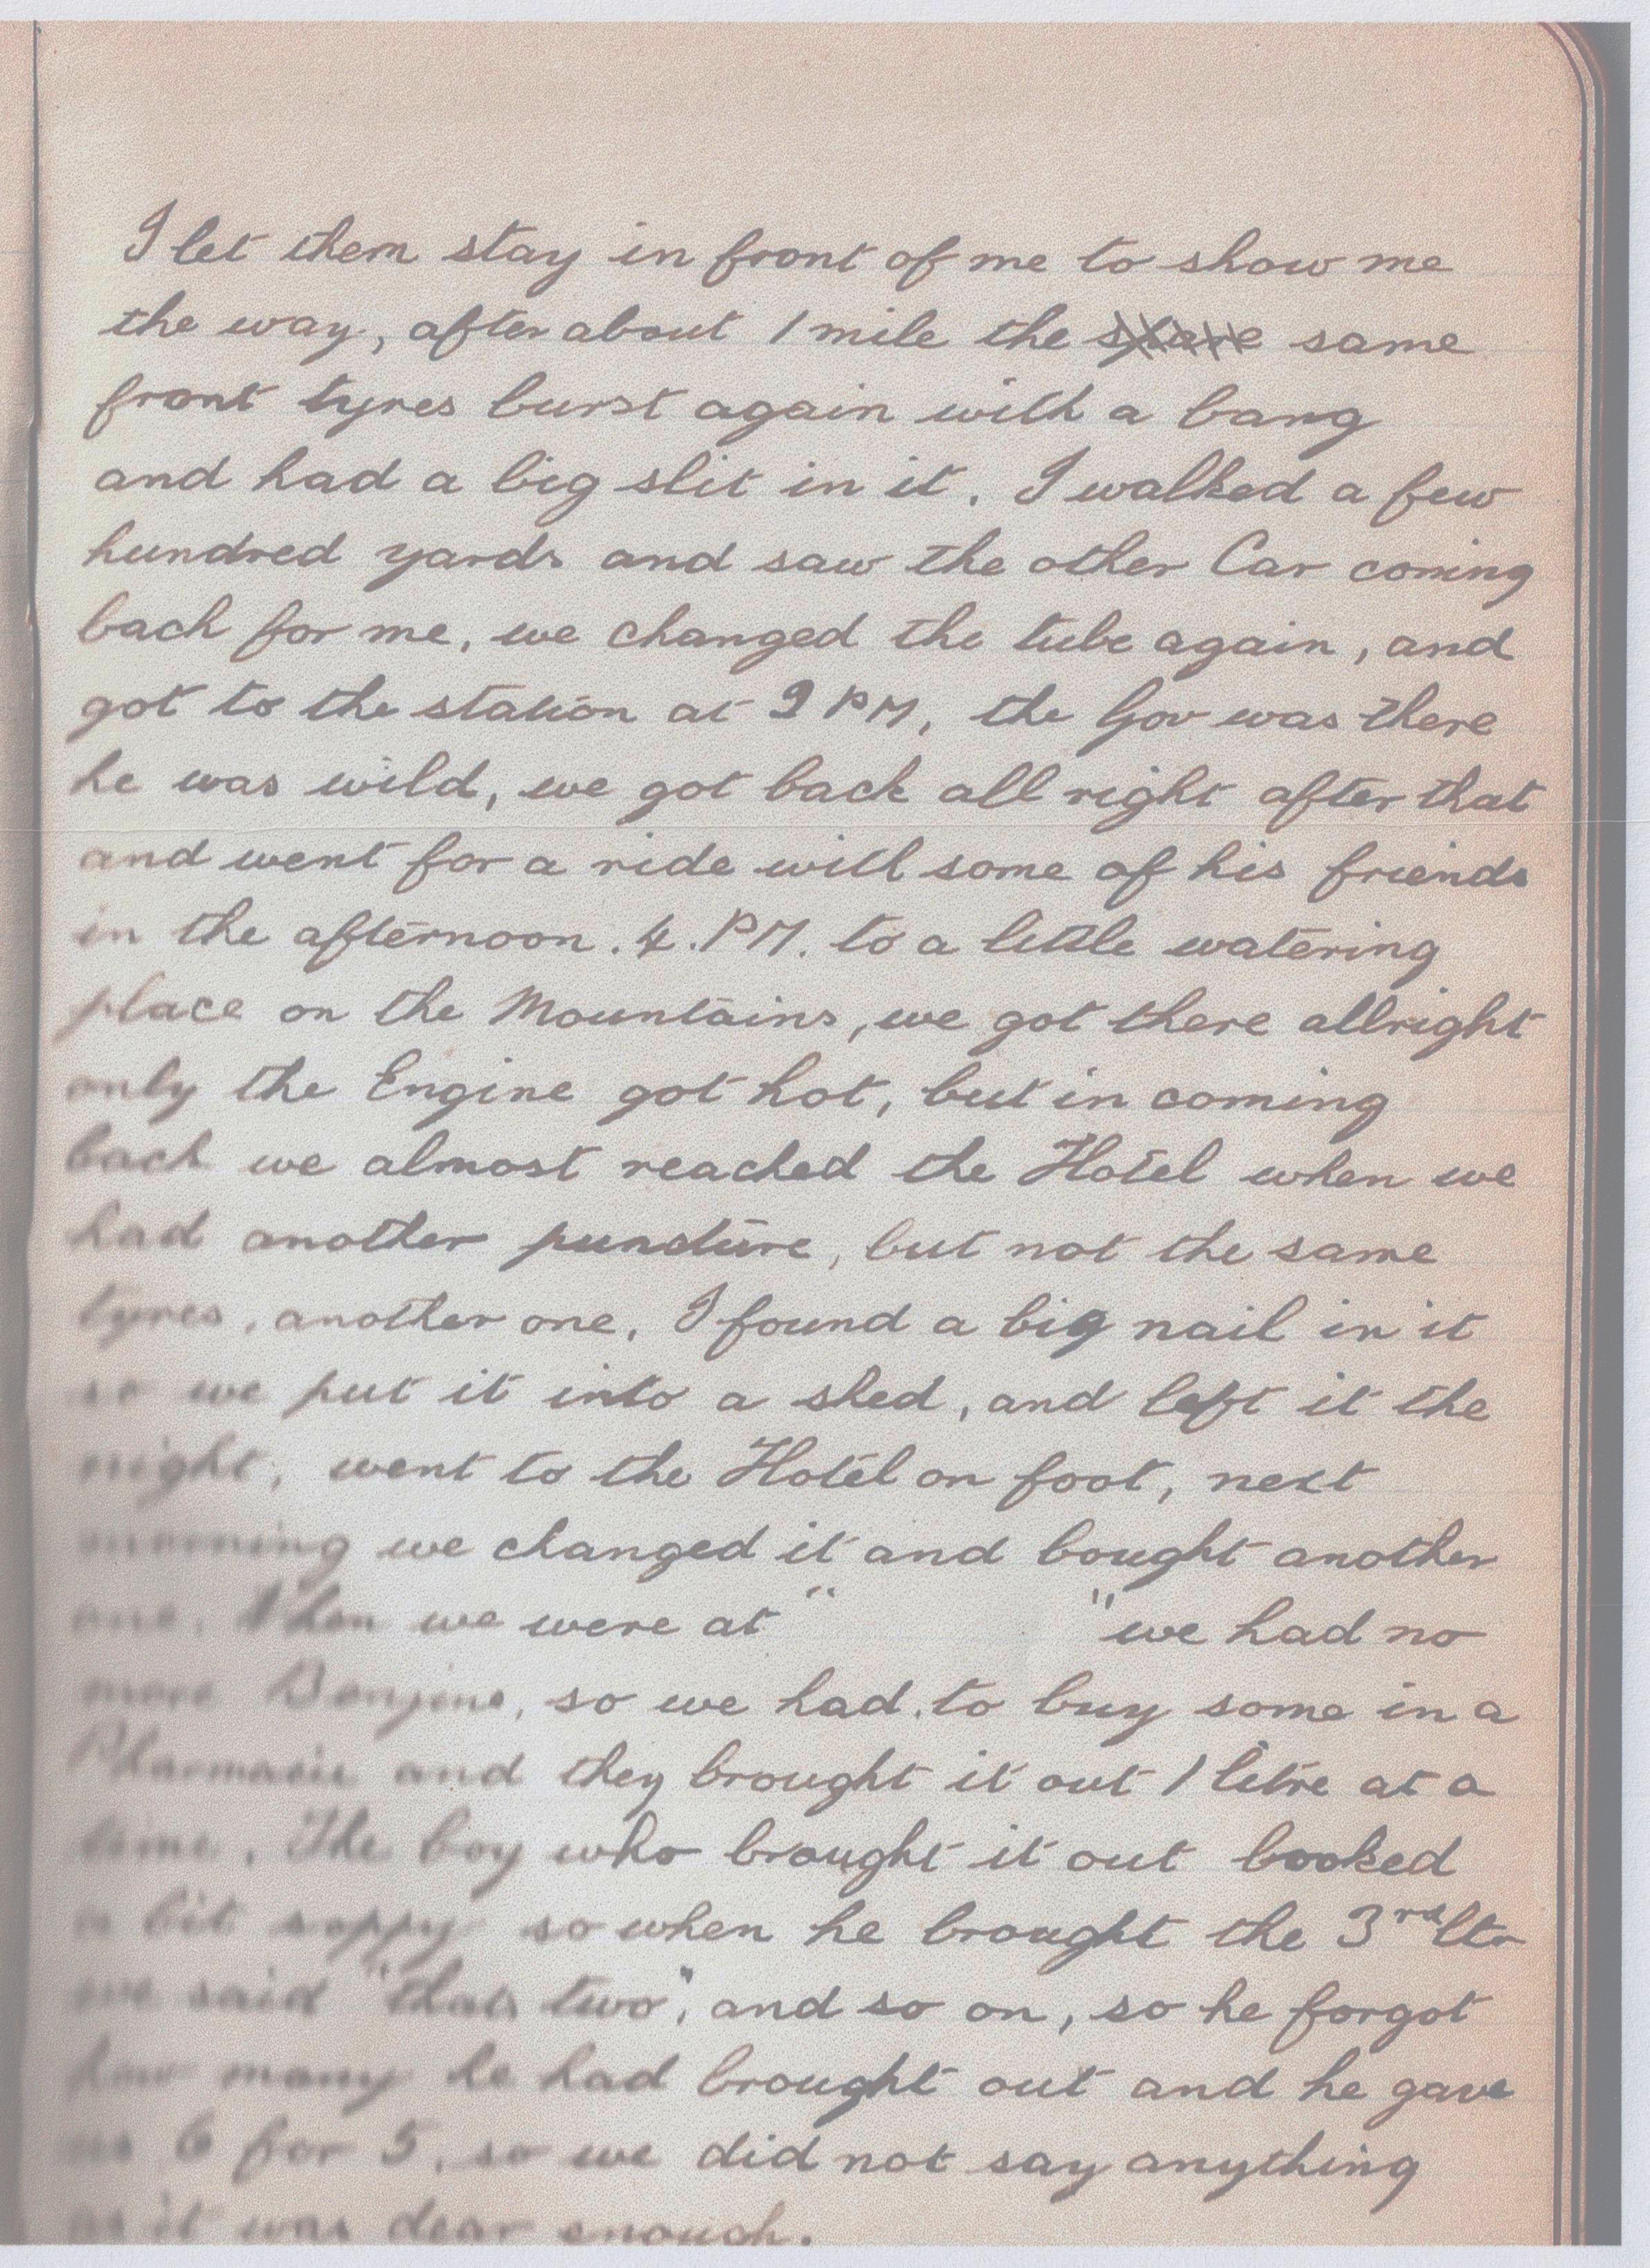 I let them stay in front of me to show me
the way, after about 1 mile the same
front tyres burst again with a bang
and had a big slit in it. I walked a few
hundred yards and saw the other Car coming
back for me, we changed the tube again, and
got to the station at PM, the Gov was there
he was wild, we got back all right after that
and went for a ride will some of his friends
in the afternoon. 4. PM. to a little watering
place on the Mountains, we got there allright
only the Engine got hot, but in coming
back we almost reached the Hotel when we
had another puncture, but not the same
tyres, another one, I found a big nail in it
so we put it into a shed, and left it the
night, went to the Hotel on foot, next
morning we changed it and bought another
one. When we were at " " we had no
more Benzine, so we had to buy some in a
Pharmacie and they brought it out 1 litre at a
time. The boy who brought it out looked
a bit soppy so when he brought the 3rd ltr
we said "thats two", and so on, so he forgot
how many he had brought out and he gave
us 6 for 5, so we did not say anything
as it was dear enough.